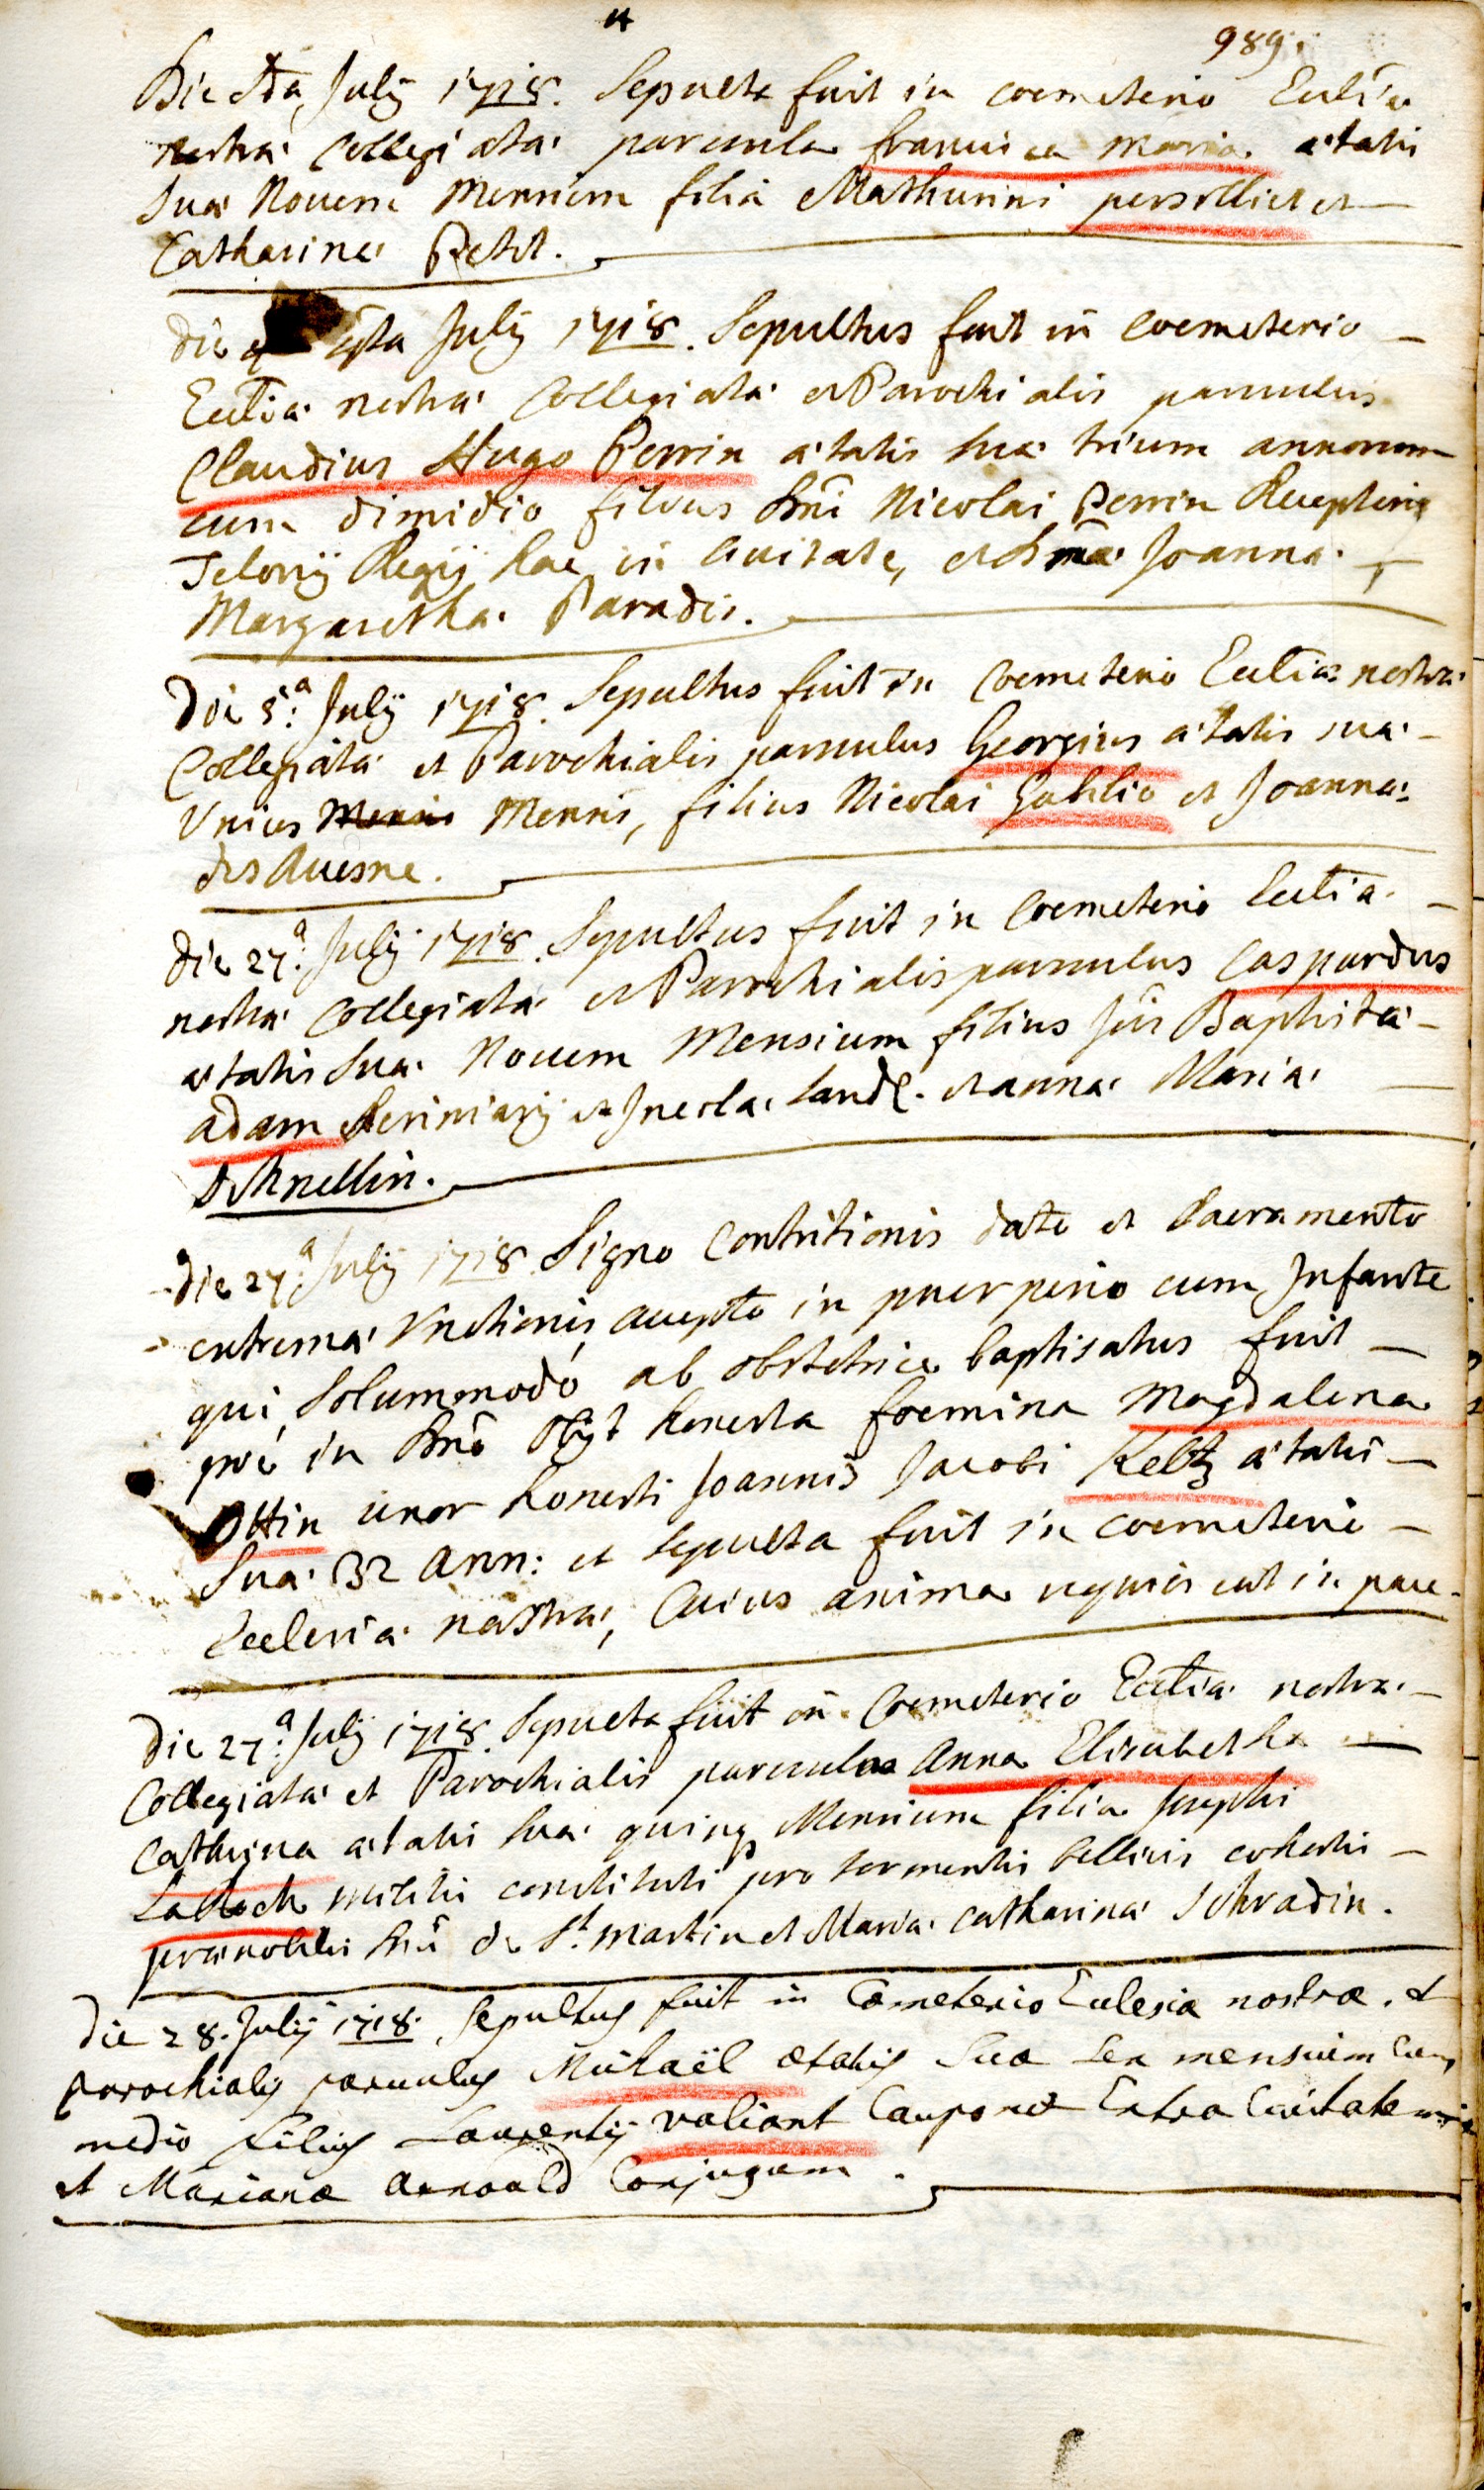 989.
Die 4ta July 1718. Sepulta fuit in coemeterio Eccl̃iæ
nostræ Collegiatæ parvula francisca Maria ætatis
suæ Novem Mensium filia Mathurini persilliet et
Catharinæ Petit.
die 4ta July 1718. Sepultus fuit in coemeterio
Eccl̃iæ nostræ Collegiatæ et Parochialis parvulus
Claudius Hugo Perrin ætatis suæ trium annorum
cum dimidio filius Dñi Nicolai Perrin Receptoris
Telonij Regij hac in Civitate, et Dñæ Joannæ
Margarethæ Paradis.
Die 5.ª July 1718. Sepultus fuit in Coemeterio Eccl̃iæ nostræ
Collegiatæ et Parochialis parvulus Georgius ætatis suæ
Unius Mensis Mensis, filius Nicolai Gahlio et Joannæ
des Avesne.
die 27.ª July 1718. Sepultus fuit in Coemeterio Eccl̃iæ
nostræ Collegiatæ et Parochialis parvulus Caspardus
ætatis suæ Novem Mensium filius Jõis Baptistæ
adam Scriniarij et Incolæ Land. et annæ Mariæ
Schnellin.
Die 27.ª July 1718. Signo Contritionis dato et Sacramento
extremæ Unctionis accepto in puerperio cum Infante
qui solummodò ab obstetrice baptisatus fuit
piè in Dño Obijt honesta foemina Magdalena
Ottin uxor honesti Joannis Jacobi Keltz ætatis
Suæ 32 ann: et sepulta fuit in coemeterio
Ecclesiæ nostræ, Cuius anima requiescat in pace.
Die 27.ª July 1718. Sepulta fuit in Coemeterio Eccl̃iæ nostræ
Collegiatæ et Parochialis parvula Anna Elisabetha
Cathrina ætatis suæ quinq Mensium filia Josephi
militis constituti pro tormentis bellicis cohortis
prænobilis Dñi de St. Martin et Mariæ Catharinæ Schradin.
Die 28. July 1718. Sepultus fuit in Cæmeterio Eclesiæ nostræ. et
parochialis parvulus Michaël ætatis Suæ sex mensium Cum
medio filius Laurentij valiant Cauponis Extra Civitatem
et Marianæ Arnould Conjugum.